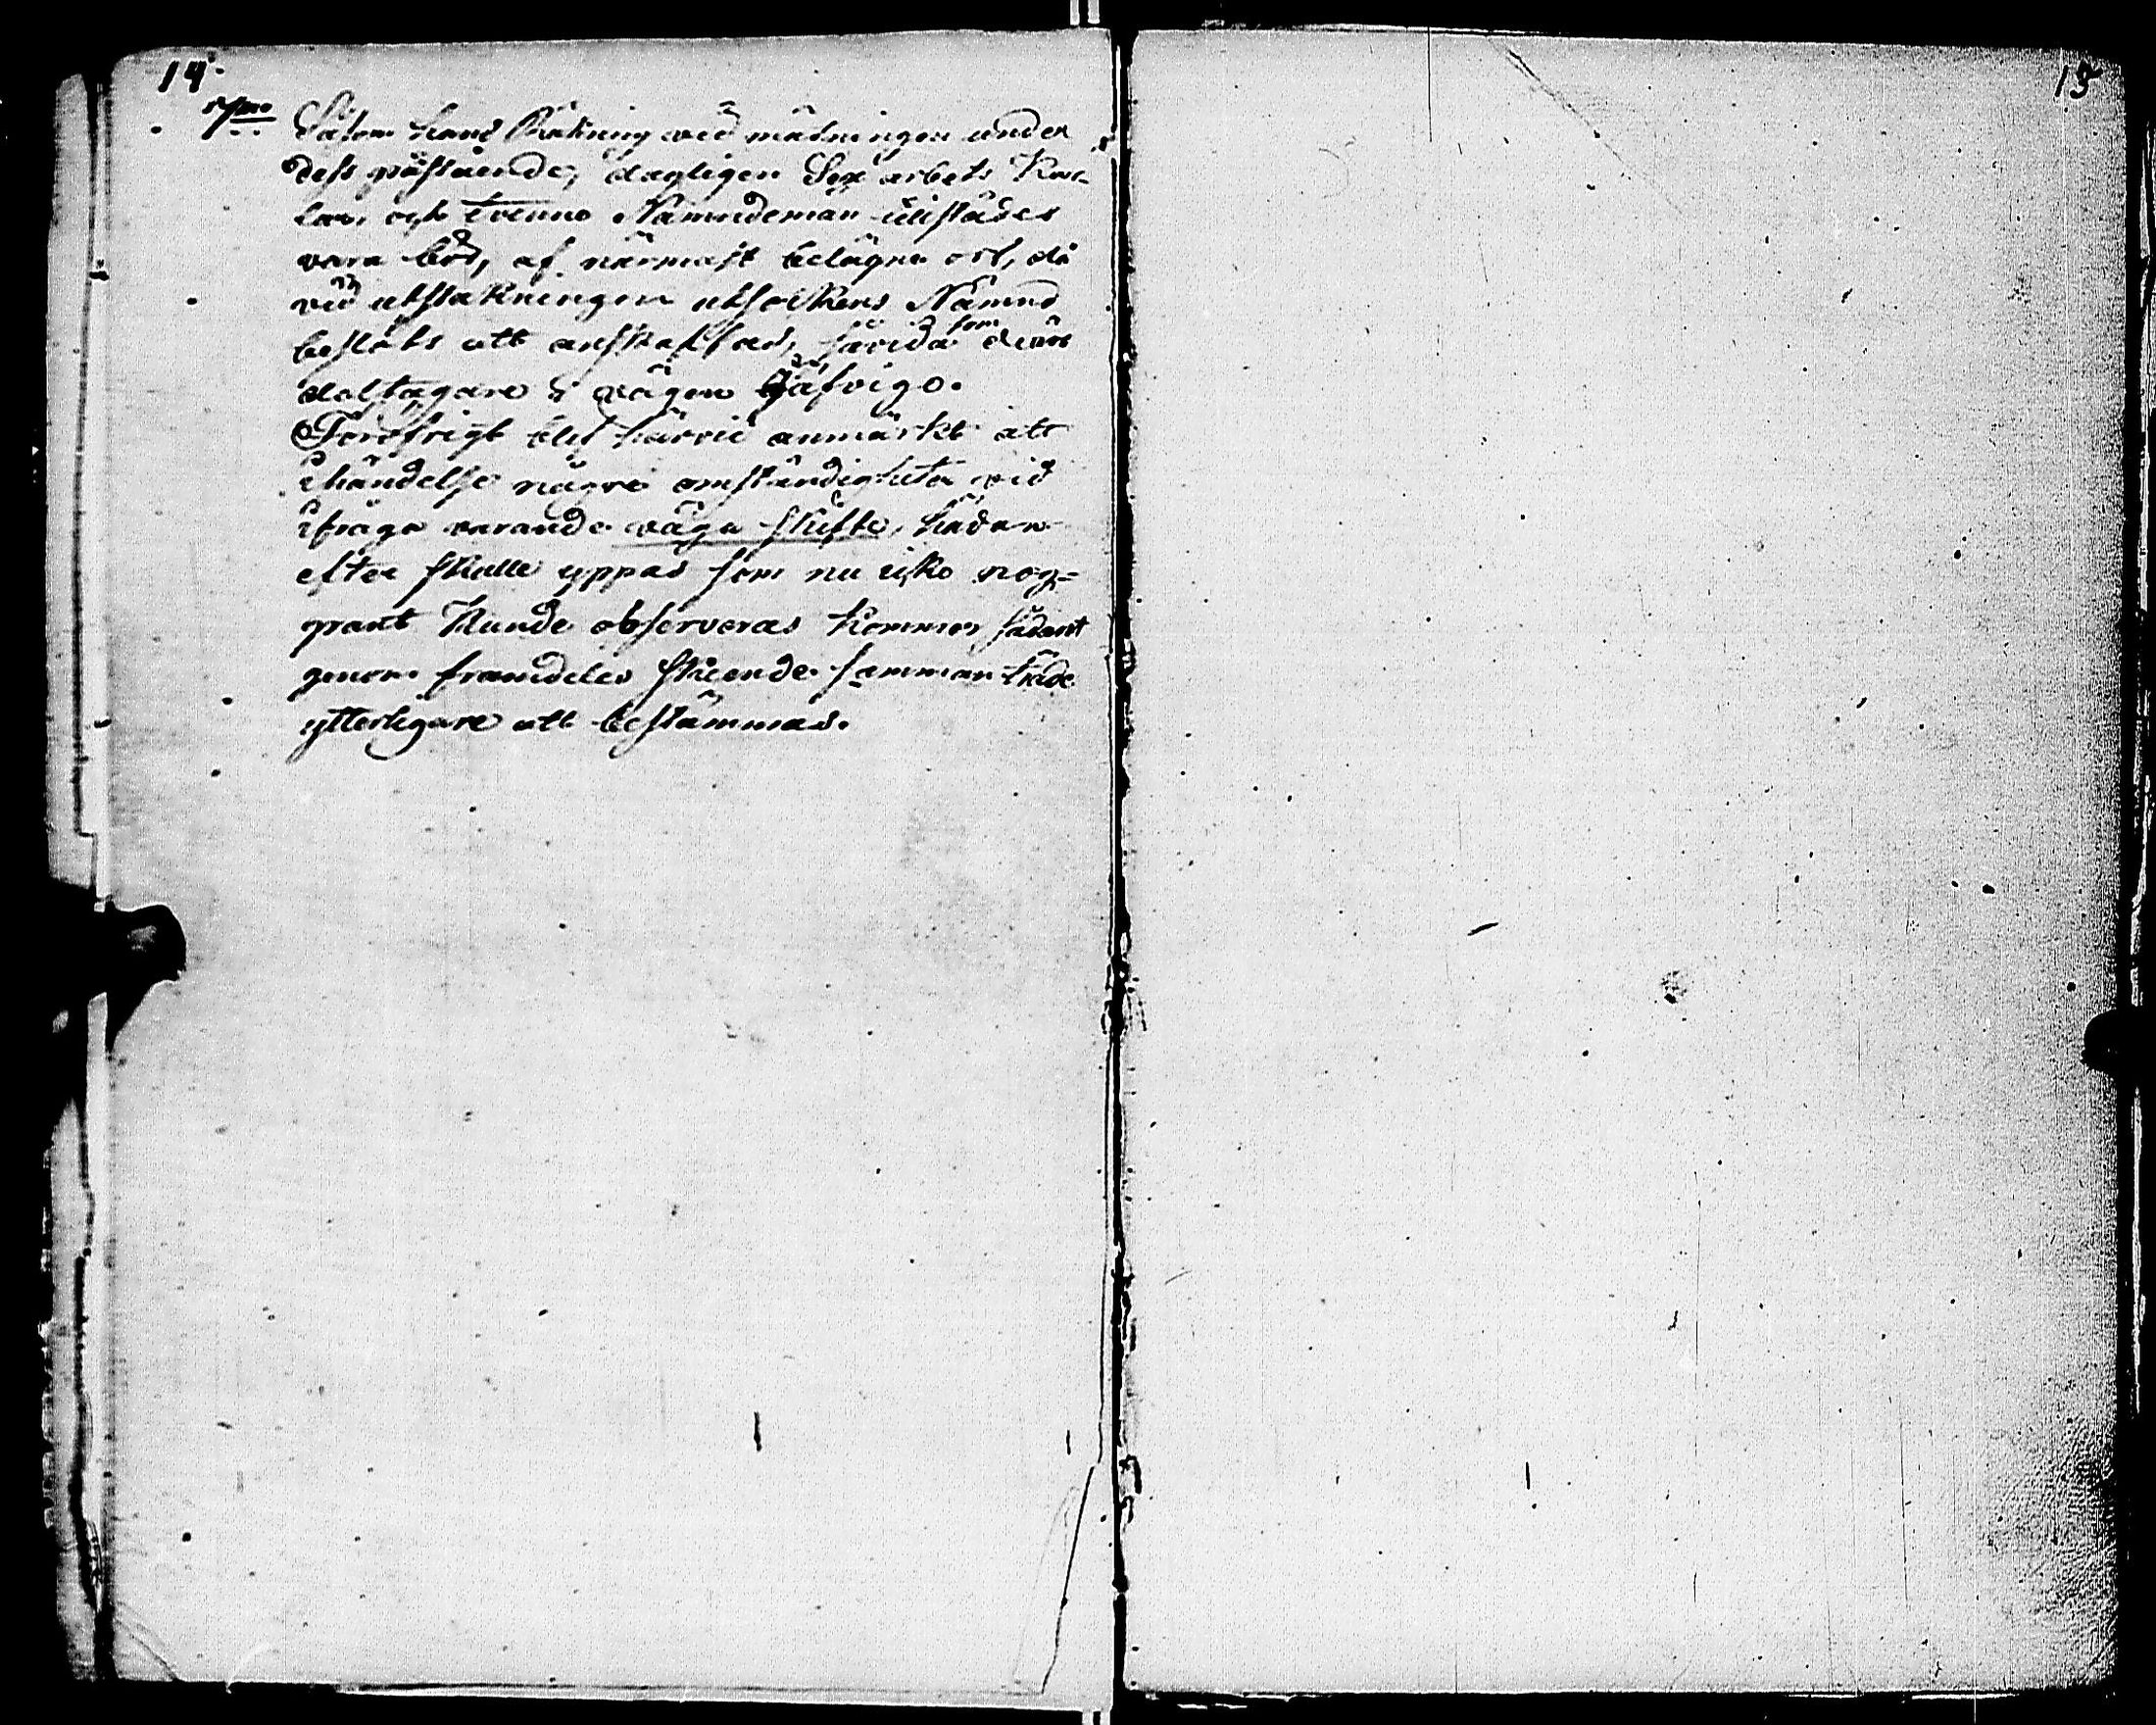 14.
7mo
Såsom hand Räkning wid mätningen under
dess påstående, dagligen Sex arbets Kar-
lar, och tvenne Nämndemän tillstädes
vara bör, af närmast belägne ort, då
vid utstakningen utsocknens Nämnd
beslöts att anskaffas, såvida som denne
deltagare i vägen äro jäfvige.
Föröfrigt blef härvid anmärkt att
ihändelse några omständigheter wid
ifråga varande wäga skifte, hädan
efter skulle yppas som nu icke nog-
grant Kunde observeras kommer sådant
genom framdeles skeende samman träde
ytterligare att bestämmas.
15